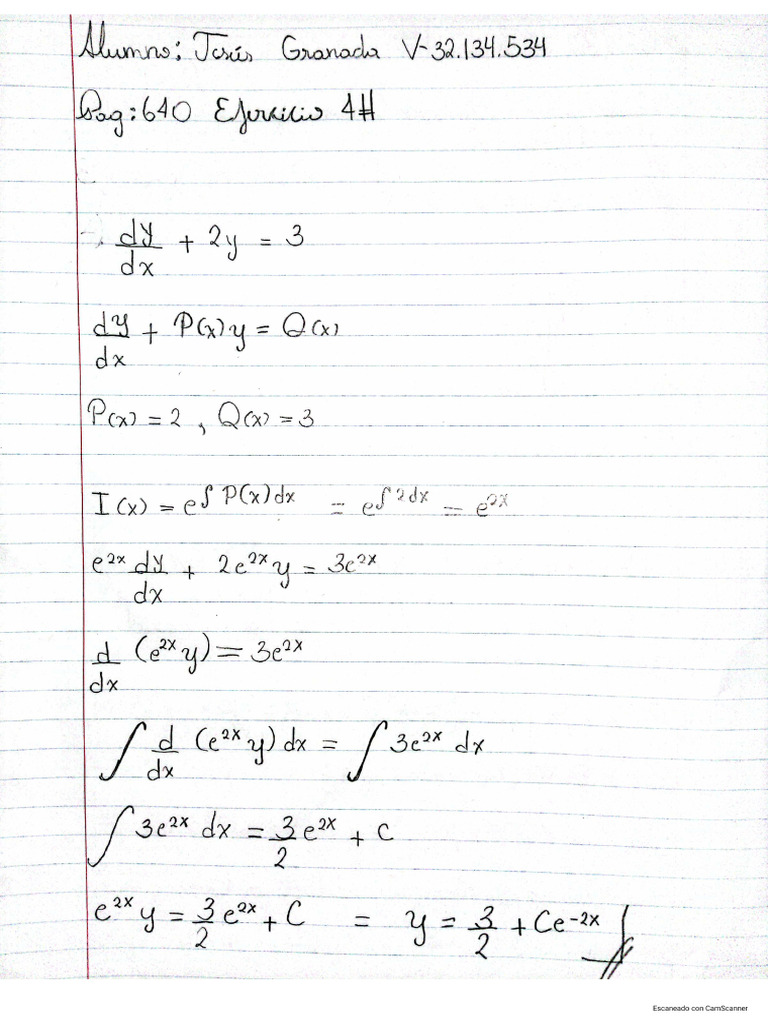 Alumno: Jesús Granada V-32.134.534
Pag: 640 Ejercicio 4#
dy/dx + 2y = 3
dy/dx + P(x)y = Q(x)
P(x) = 2 , Q(x) = 3
I(x) = e^∫P(x)dx = e^∫2dx = e^2x
e^2x dy/dx + 2e^2x y = 3e^2x
d/dx (e^2x y) = 3e^2x
∫ d/dx (e^2x y) dx = ∫ 3e^2x dx
∫ 3e^2x dx = 3/2 e^2x + C
e^2x y = 3/2 e^2x + C = y = 3/2 + Ce^-2x
Escaneado con CamScanner